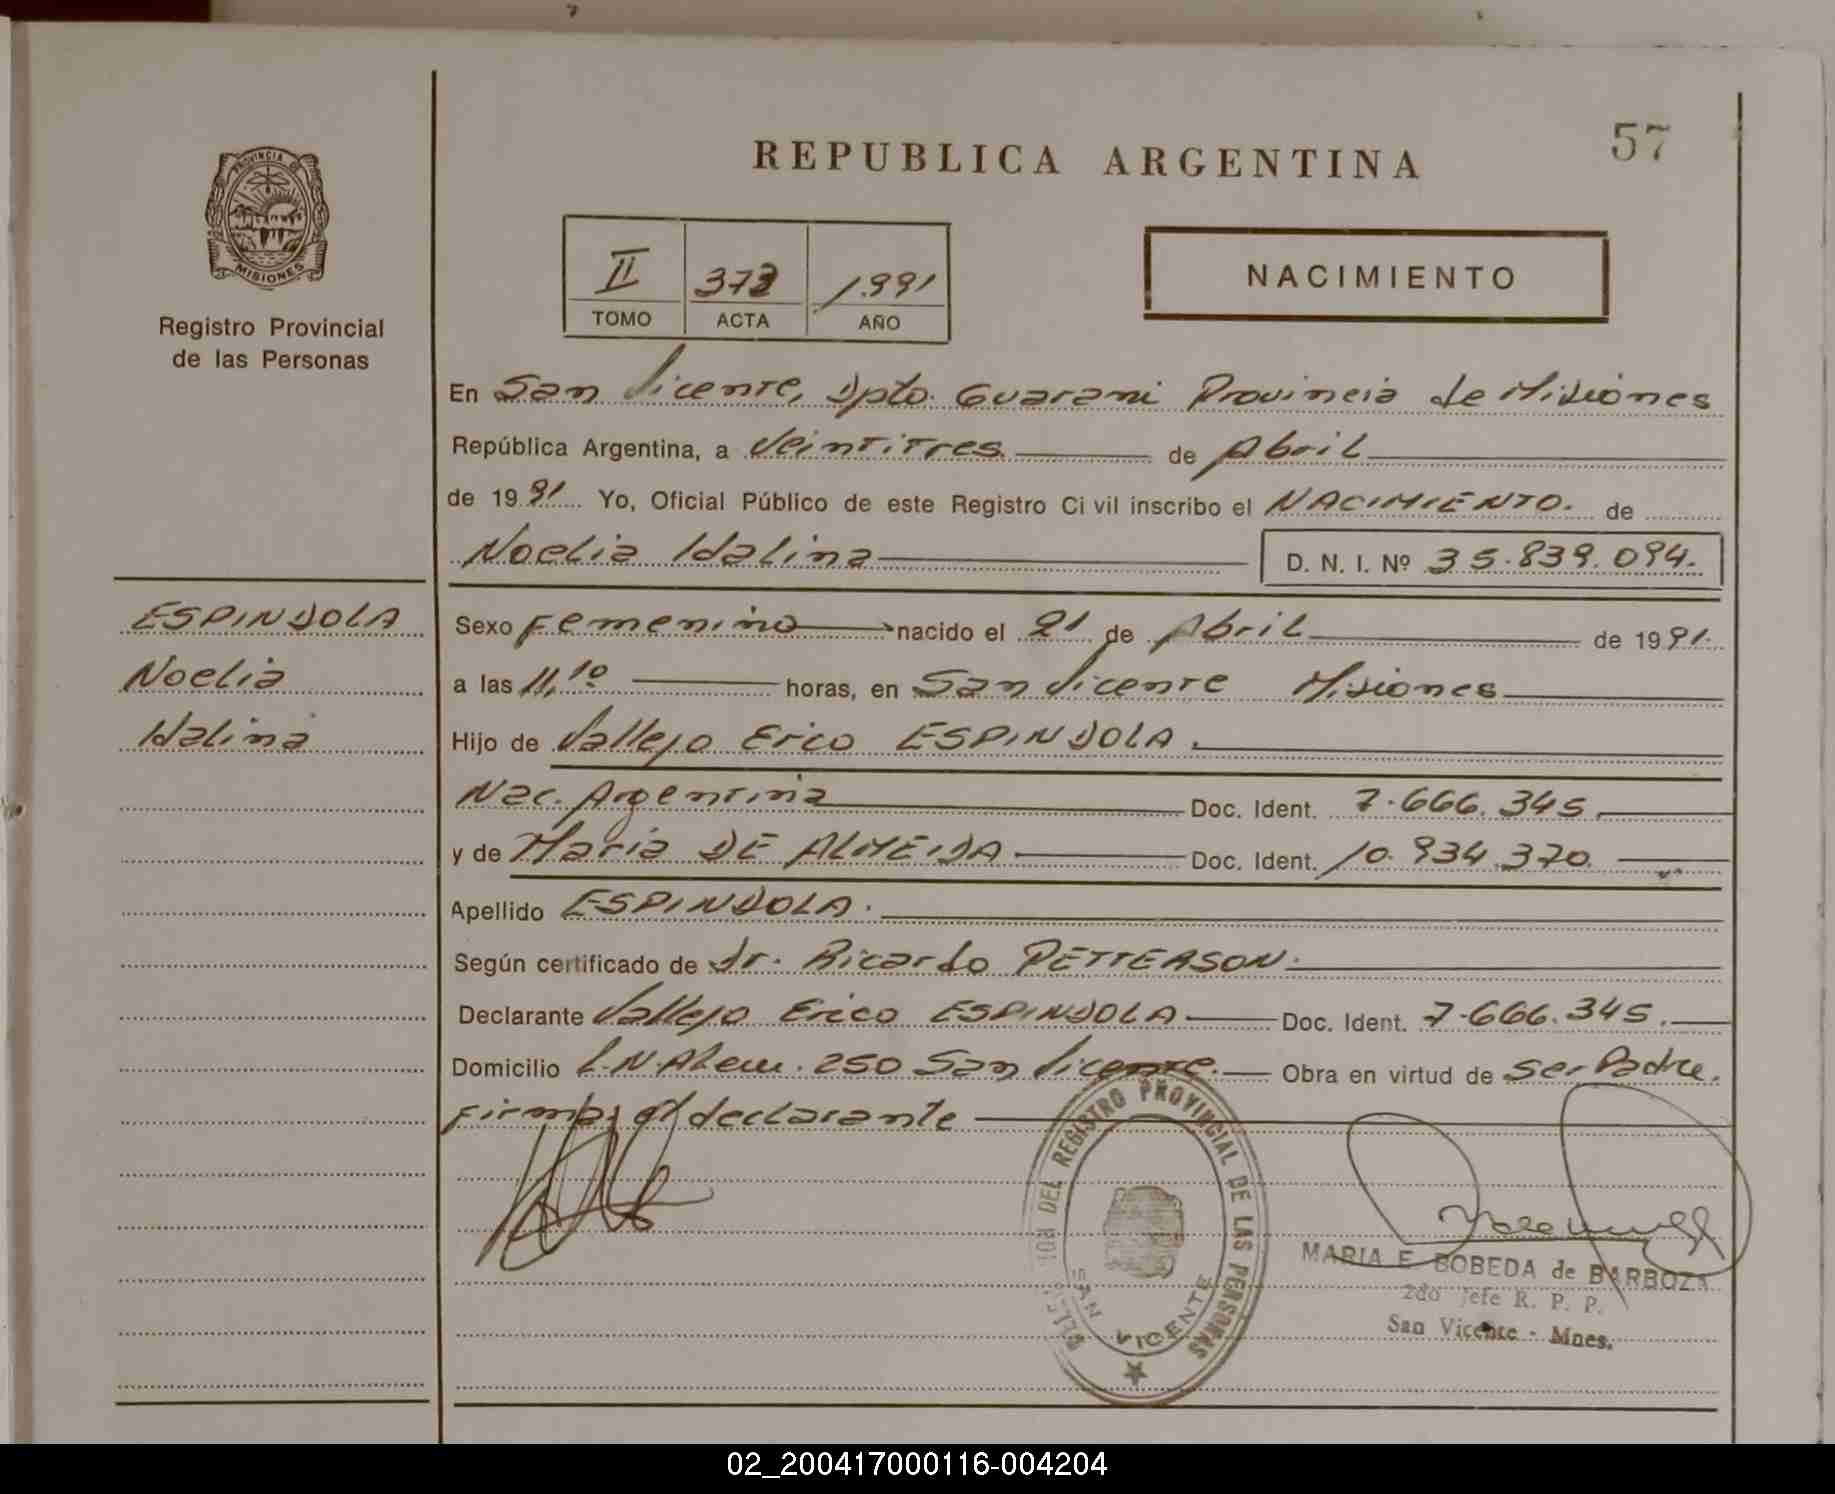 57
REPUBLICA ARGENTINA
PROVINCIA DE
MISIONES
Registro Provincial
de las Personas
II 373 1.991
TOMO ACTA AÑO
NACIMIENTO
En San Vicente, Dpto. Guarani Provincia de Misiones
República Argentina, a Veintitres de Abril
de 19 91 Yo, Oficial Público de este Registro Civil inscribo el NACIMIENTO. de
Noelia Idalina D. N. I. Nº 35.839.094.
ESPINDOLA
Noelia
Idalina
Sexo Femenino nacido el 21 de Abril de 19 91.
a las 11,10 horas, en San Vicente Misiones
Hijo de Vallejo Erico ESPINDOLA.
Nac. Argentina Doc. Ident. 7.666.345.
y de Maria DE ALMEIDA Doc. Ident. 10.934.370.
Apellido ESPINDOLA.
Según certificado de Dr. Ricardo PETTERSON.
Declarante Vallejo Erico ESPINDOLA Doc. Ident. 7.666.345.
Domicilio L.N.Alem. 250 San Vicente. Obra en virtud de ser Padre.
Firma el declarante
DEL REGISTRO PROVINCIAL DE LAS PERSONAS
SAN VICENTE
MARIA E. BOBEDA de BARBOZA
2do Jefe R. P. P.
San Vicente - Mnes.
02_200417000116-004204